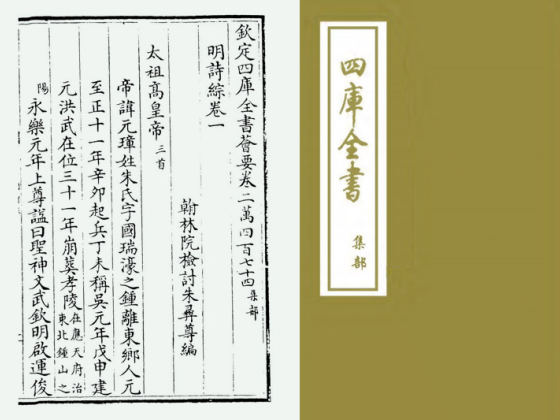 欽定四庫全書薈要卷二萬四百七十四集部
明詩綜卷一
翰林院檢討朱彝尊編
太祖高皇帝三首
帝諱元璋姓朱氏字國瑞濠之鍾離東鄉人元
至正十一年辛卯起兵丁未稱吳元年戊申建
元洪武在位三十一年崩葬孝陵在應天府治東北鍾山之
陽永樂元年上尊諡曰聖神文武欽明啟運俊
四庫全書
集部